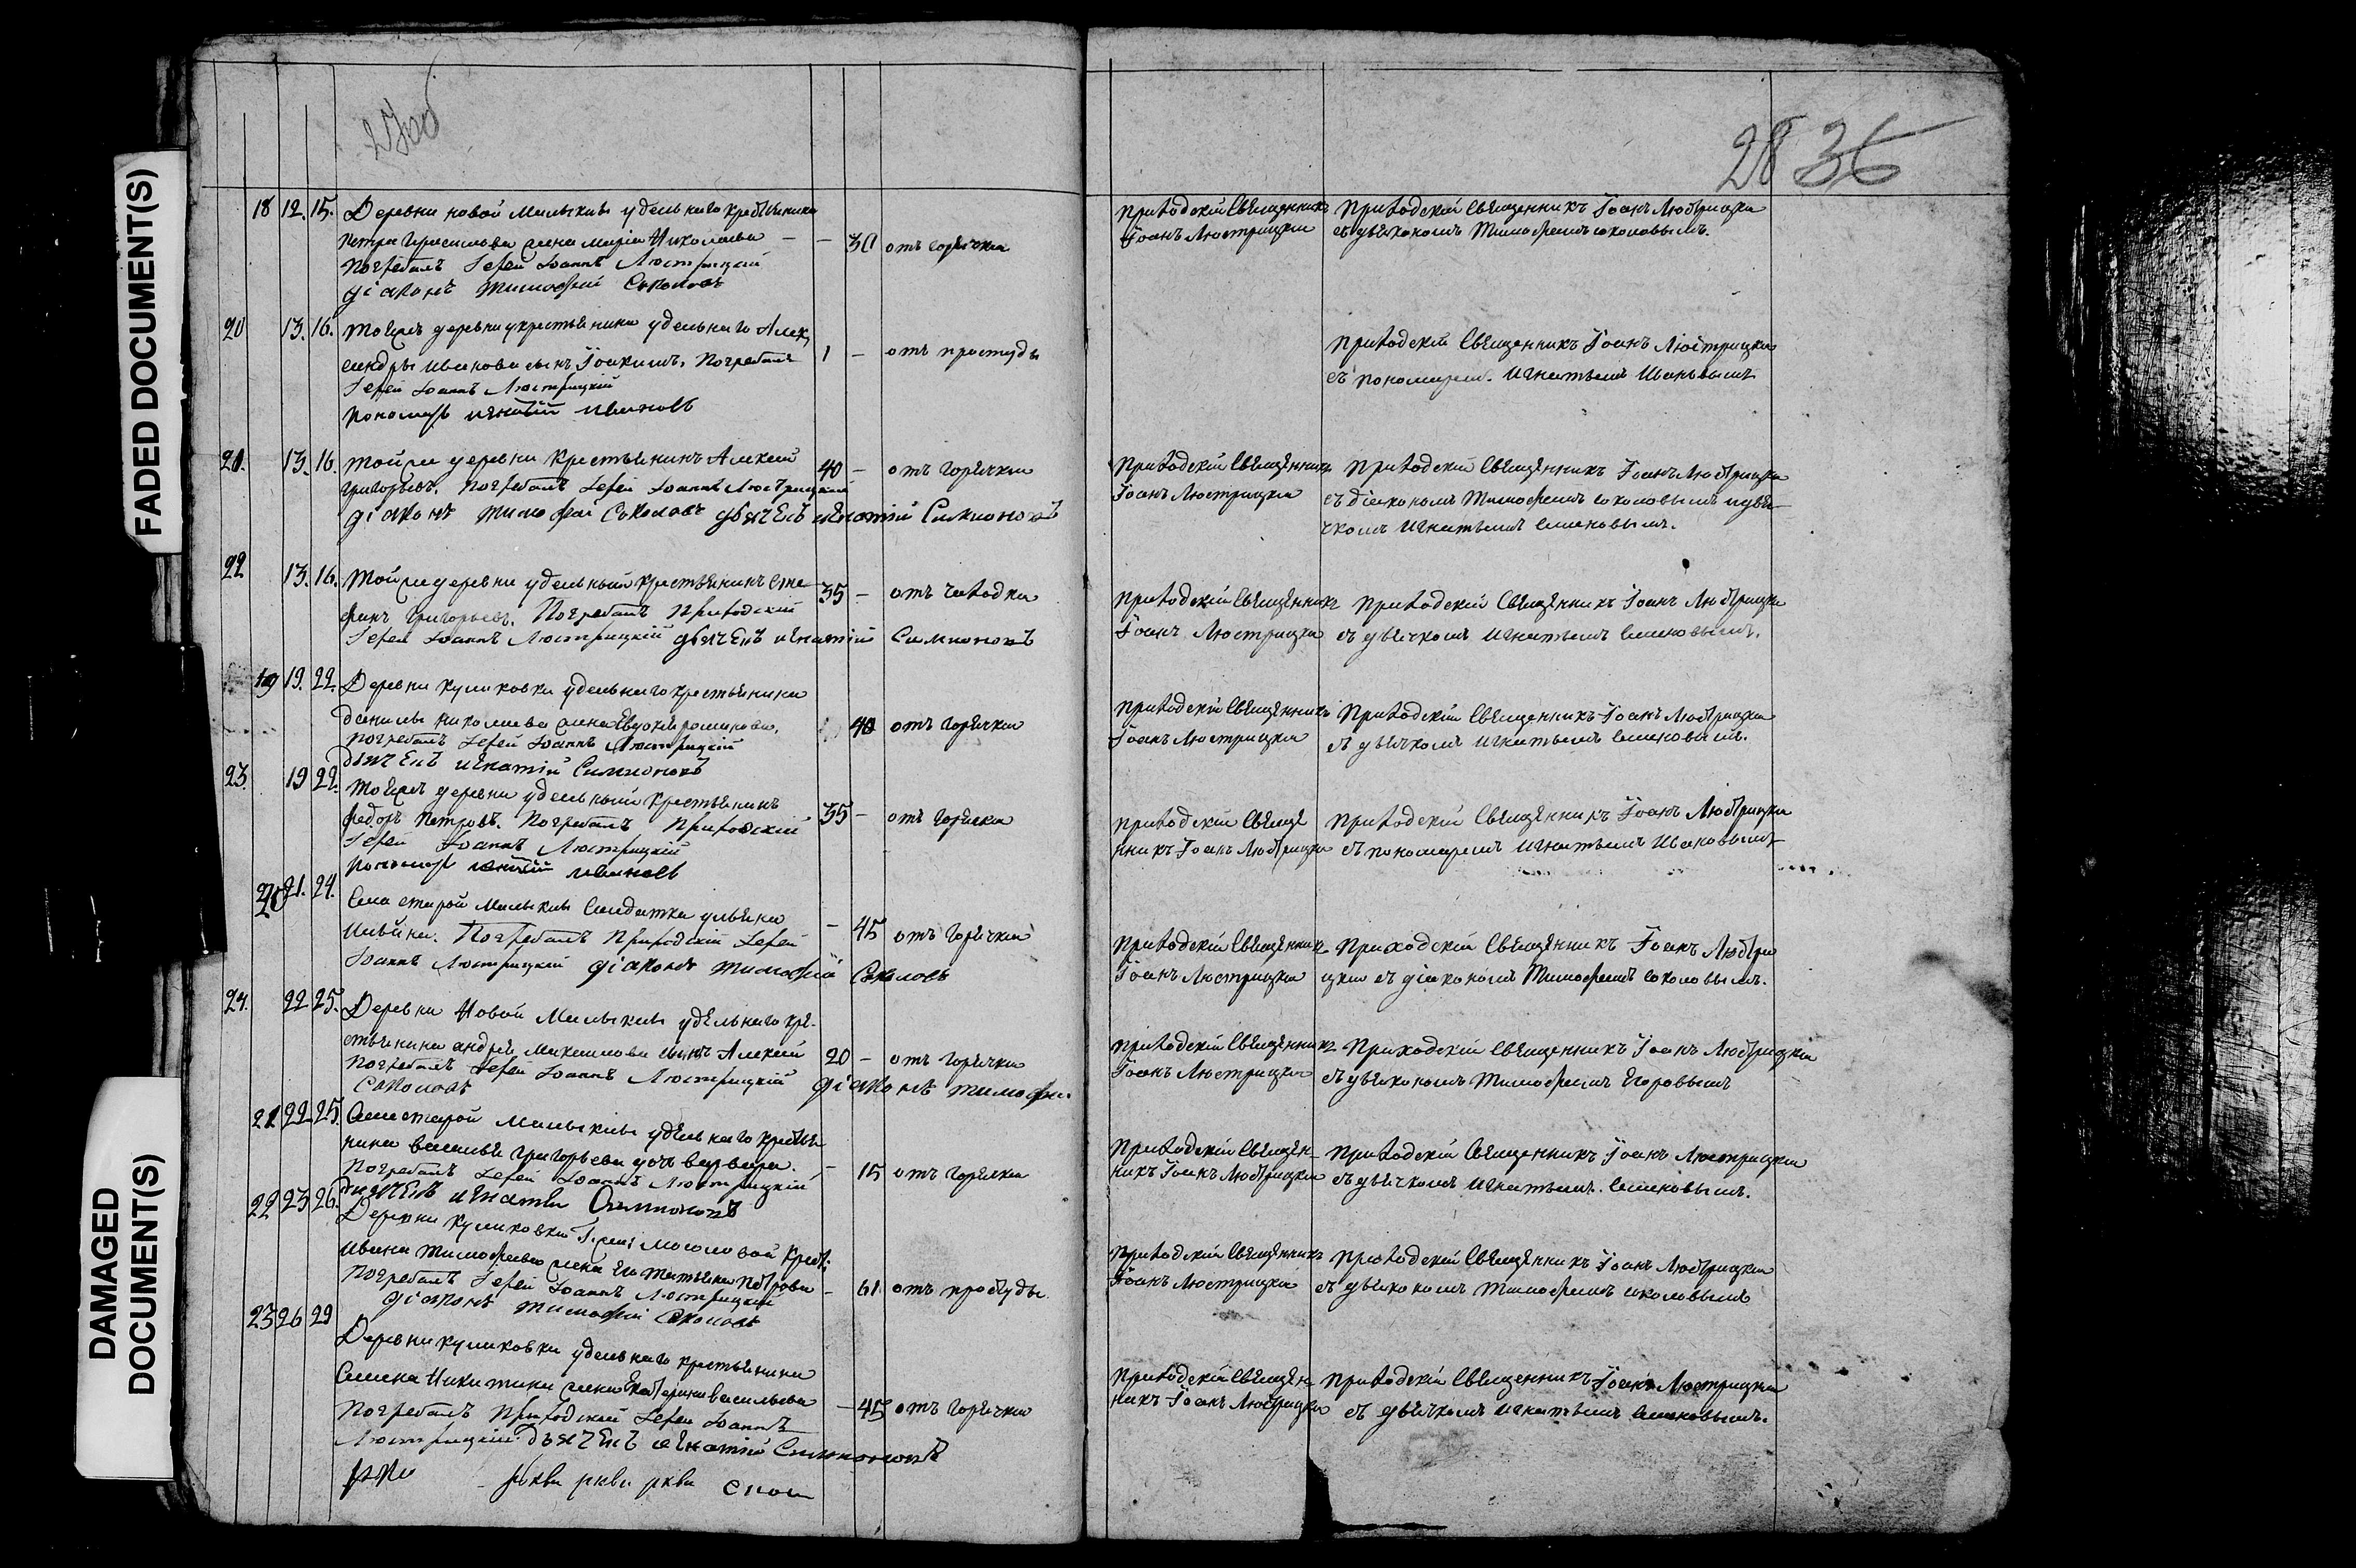 FADED DOCUMENT(S)
DAMAGED DOCUMENT(S)
27об
28 36
18 12. 15. Деревни новой Малыклы удельнаго крестьянина
Петра Герасимова жена Марія Николаева — — 30 отъ горячки
погребалъ Іерей Іоаннъ Люстрицкій
діаконъ Тимофей Соколовъ
Приходскій Священникъ
Іоанъ Люстрицкій
Приходскій Священникъ Іоанъ Люстрицкій
съ дьякономъ Тимофеемъ соколовымъ.
20 13. 16. Тойже деревни крестьянина удельнаго Алек
сандры иванова сынъ Іоакимъ. Погребалъ 1 — отъ простуды
Іерей Іоаннъ Люстрицкій
Пономарь игнатій ивановъ
Приходскій Священникъ Іоанъ Люстрицкій
съ пономаремъ. Игнатьемъ Ивановымъ
21. 13. 16. Тойже деревни крестьянинъ Алексей 40 — отъ горячки
григорьевъ. Погребалъ Іерей Іоаннъ Люстрицкій
діаконъ Тимофей Соколовъ дьячекъ игнатій Симионовъ
Приходскій Священникъ
Іоанъ Люстрицкій
Приходскій Священникъ Іоанъ Люстрицкій
съ діякономъ Тимофеемъ соколовымъ и дья
чкомъ Игнатьемъ семеновымъ.
22 13. 16. Тойже деревни удельный крестьянинъ Сте 35 — отъ чахотки
фанъ григорьевъ. Погребалъ Приходскій
Іерей Іоаннъ Люстрицкій дьячекъ игнатій Симионовъ
Приходскій Священникъ
Іоанъ Люстрицкій
Приходскій Священникъ Іоанъ Люстрицкій
съ дьячкомъ Игнатьемъ семеновымъ.
19 19. 22. Деревни куликовки удельнаго крестьянина
данилы николаева жена Евдокія романова. 40 отъ горячки
погребалъ Іерей Іоаннъ Люстрицкій
дьячекъ игнатій Симионовъ
Приходскій Священникъ
Іоанъ Люстрицкій
Приходскій Священникъ Іоанъ Люстрицкій
съ дьячкомъ Игнатьемъ семеновымъ.
23. 19 22. Тойже деревни удельный крестьянинъ
федоръ Петровъ. Погребалъ Приходскій 35 — отъ горячки
Іерей Іоаннъ Люстрицкій
Пономарь игнатій ивановъ
Приходскій Свяще
нникъ Іоанъ Люстрицкій
Приходскій Священникъ Іоанъ Люстрицкій
съ пономаремъ Игнатьемъ Ивановымъ
20 21. 24. Села старой Малыклы Салдатка ульяна
Ильина. Погребалъ Приходскій Іерей — 45 отъ горячки
Іоаннъ Люстрицкій діаконъ Тимофей Соколовъ
Приходскій Священникъ
Іоанъ Люстрицкій
Приходскій Священникъ Іоанъ Люстри
цкій съ діякономъ Тимофеемъ соколовымъ.
24. 22 25. Деревни Новой Малыклы удельнаго кре-
стьянина андрея Максимова сынъ Алексей 20 — отъ горячки
погребалъ Іерей Іоаннъ Люстрицкій діаконъ Тимофей
Соколовъ
Приходскій Священникъ
Іоанъ Люстрицкій
Приходскій Священникъ Іоанъ Люстрицкій
съ дьякономъ Тимофеемъ Егоровымъ
21 22 25. Села старой Малыклы удельнаго крестья
нина василья григорьева дочь варвара. — 15 отъ горячки
погребалъ Іерей Іоаннъ Люстрицкій
дьячекъ игнатій Симионовъ
Приходскій Священ
никъ Іоанъ Люстрицкій
Приходскій Священникъ Іоанъ Люстрицкій
съ дьячкомъ Игнатьемъ. семеновымъ.
22 23 26. Деревни куликовки крест:
ивана Тимофеева жена его татьяна петрова — 61 отъ простуды.
погребалъ Іерей Іоаннъ Люстрицкій
діаконъ Тимофей Соколовъ
Приходскій Священникъ
Іоанъ Люстрицкій
Приходскій Священникъ Іоанъ Люстрицкій
съ дьякономъ Тимофеемъ соколовымъ
23 26 29 Деревни куликовки удельнаго крестьянина
Семена Никитина жена Екатерина васильева — 45 отъ горячки
погребалъ Приходскій Іерей Іоаннъ
Люстрицкій дьячекъ игнатій Симионовъ
Приходскій Священ
никъ Іоанъ Люстрицкій
Приходскій Священникъ Іоанъ Люстрицкій
съ дьячкомъ Игнатьемъ семеновымъ.